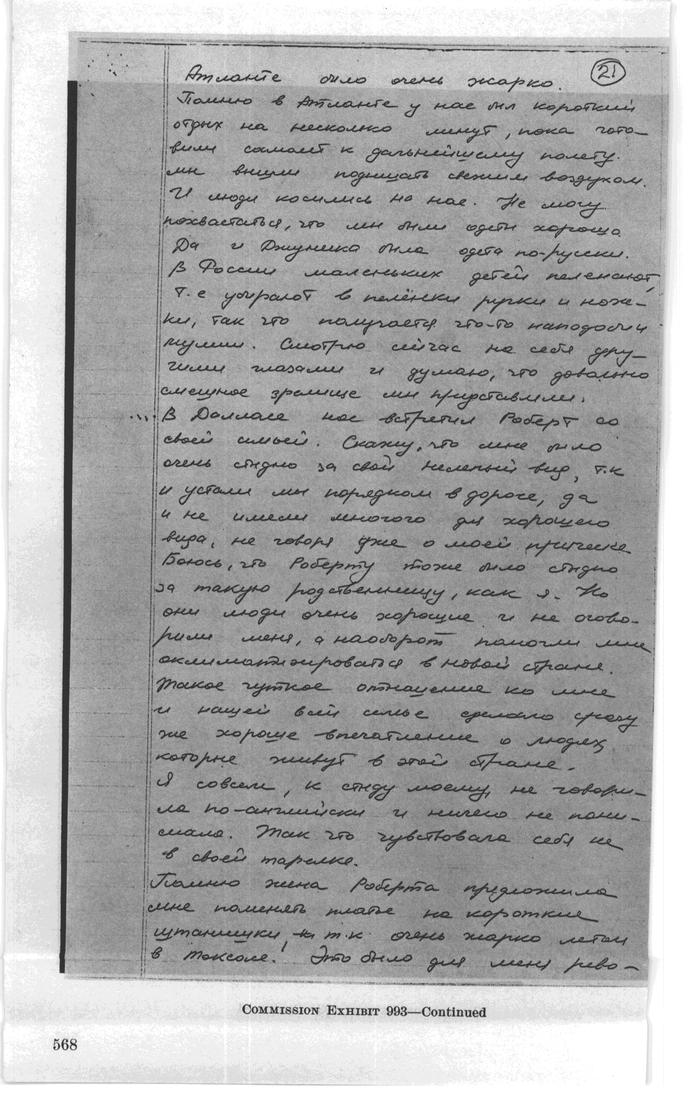 21
Атланте было очень жарко.
Помню в Атланте у нас был короткий
отдых на несколько минут, пока гото-
вили самолет к дальнейшему полету.
мы вышли подышать свежим воздухом.
И люди косились на нас. Не могу
похвастаться, что мы были одеты хорошо
Да и Джуника была одета по-русски.
В России маленьких детей пеленают,
т.е убирают в пелёнки ручки и нож-
ки, так что получается что-то наподобии
мумии. Смотрю сейчас на себя дру-
гими глазами и думаю, что довольно
смешное зрелище мы представили.
В Далласе нас встретил Роберт со
своей семьей. Скажу, что мне было
очень стыдно за свой нелепый вид, т.к
и устали мы порядком в дороге, да
и не имели многого для хорошего
вида, не говоря уже о моей прическе
Боюсь, что Роберту тоже было стыдно
за такую родственницу, как я. Но
они люди очень хорошие и не огово-
рили меня, а наоборот помогли мне
оклиматизироваться в новой стране.
Такое чуткое отношение ко мне
и нашей всей семье сделало сразу
же хороше впечатление о людях,
которые живут в этой стране.
Я совсем, к стыду моему, не говори-
ла по-английски и ничего не пони-
мала. Так что чувствовала себя не
в своей тарелке.
Помню жена Роберта предложила
мне поменять платье на короткие
штанишки т.к. очень жарко летом
в Токсасе! Это было для меня рево-
COMMISSION EXHIBIT 993—Continued
568